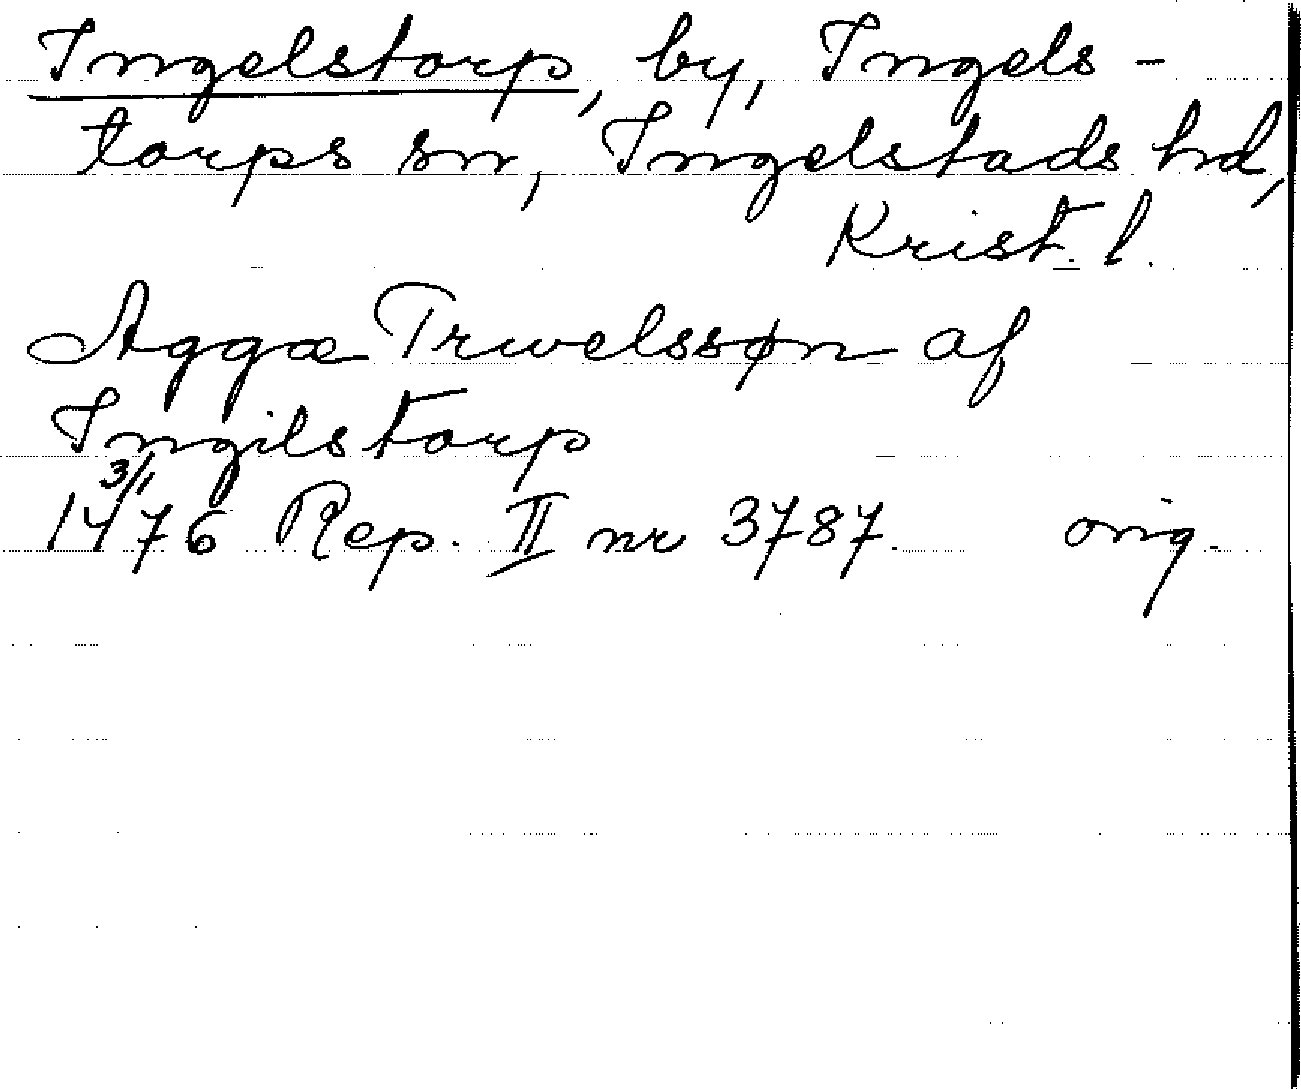 Ingelstorp, by, Ingels-
torps sn, Ingelstads hd,
Krist. l.
Aggæ Trwelssøn af
Ingilstorp
3/1
1476 Rep. II nr 3787. orig.